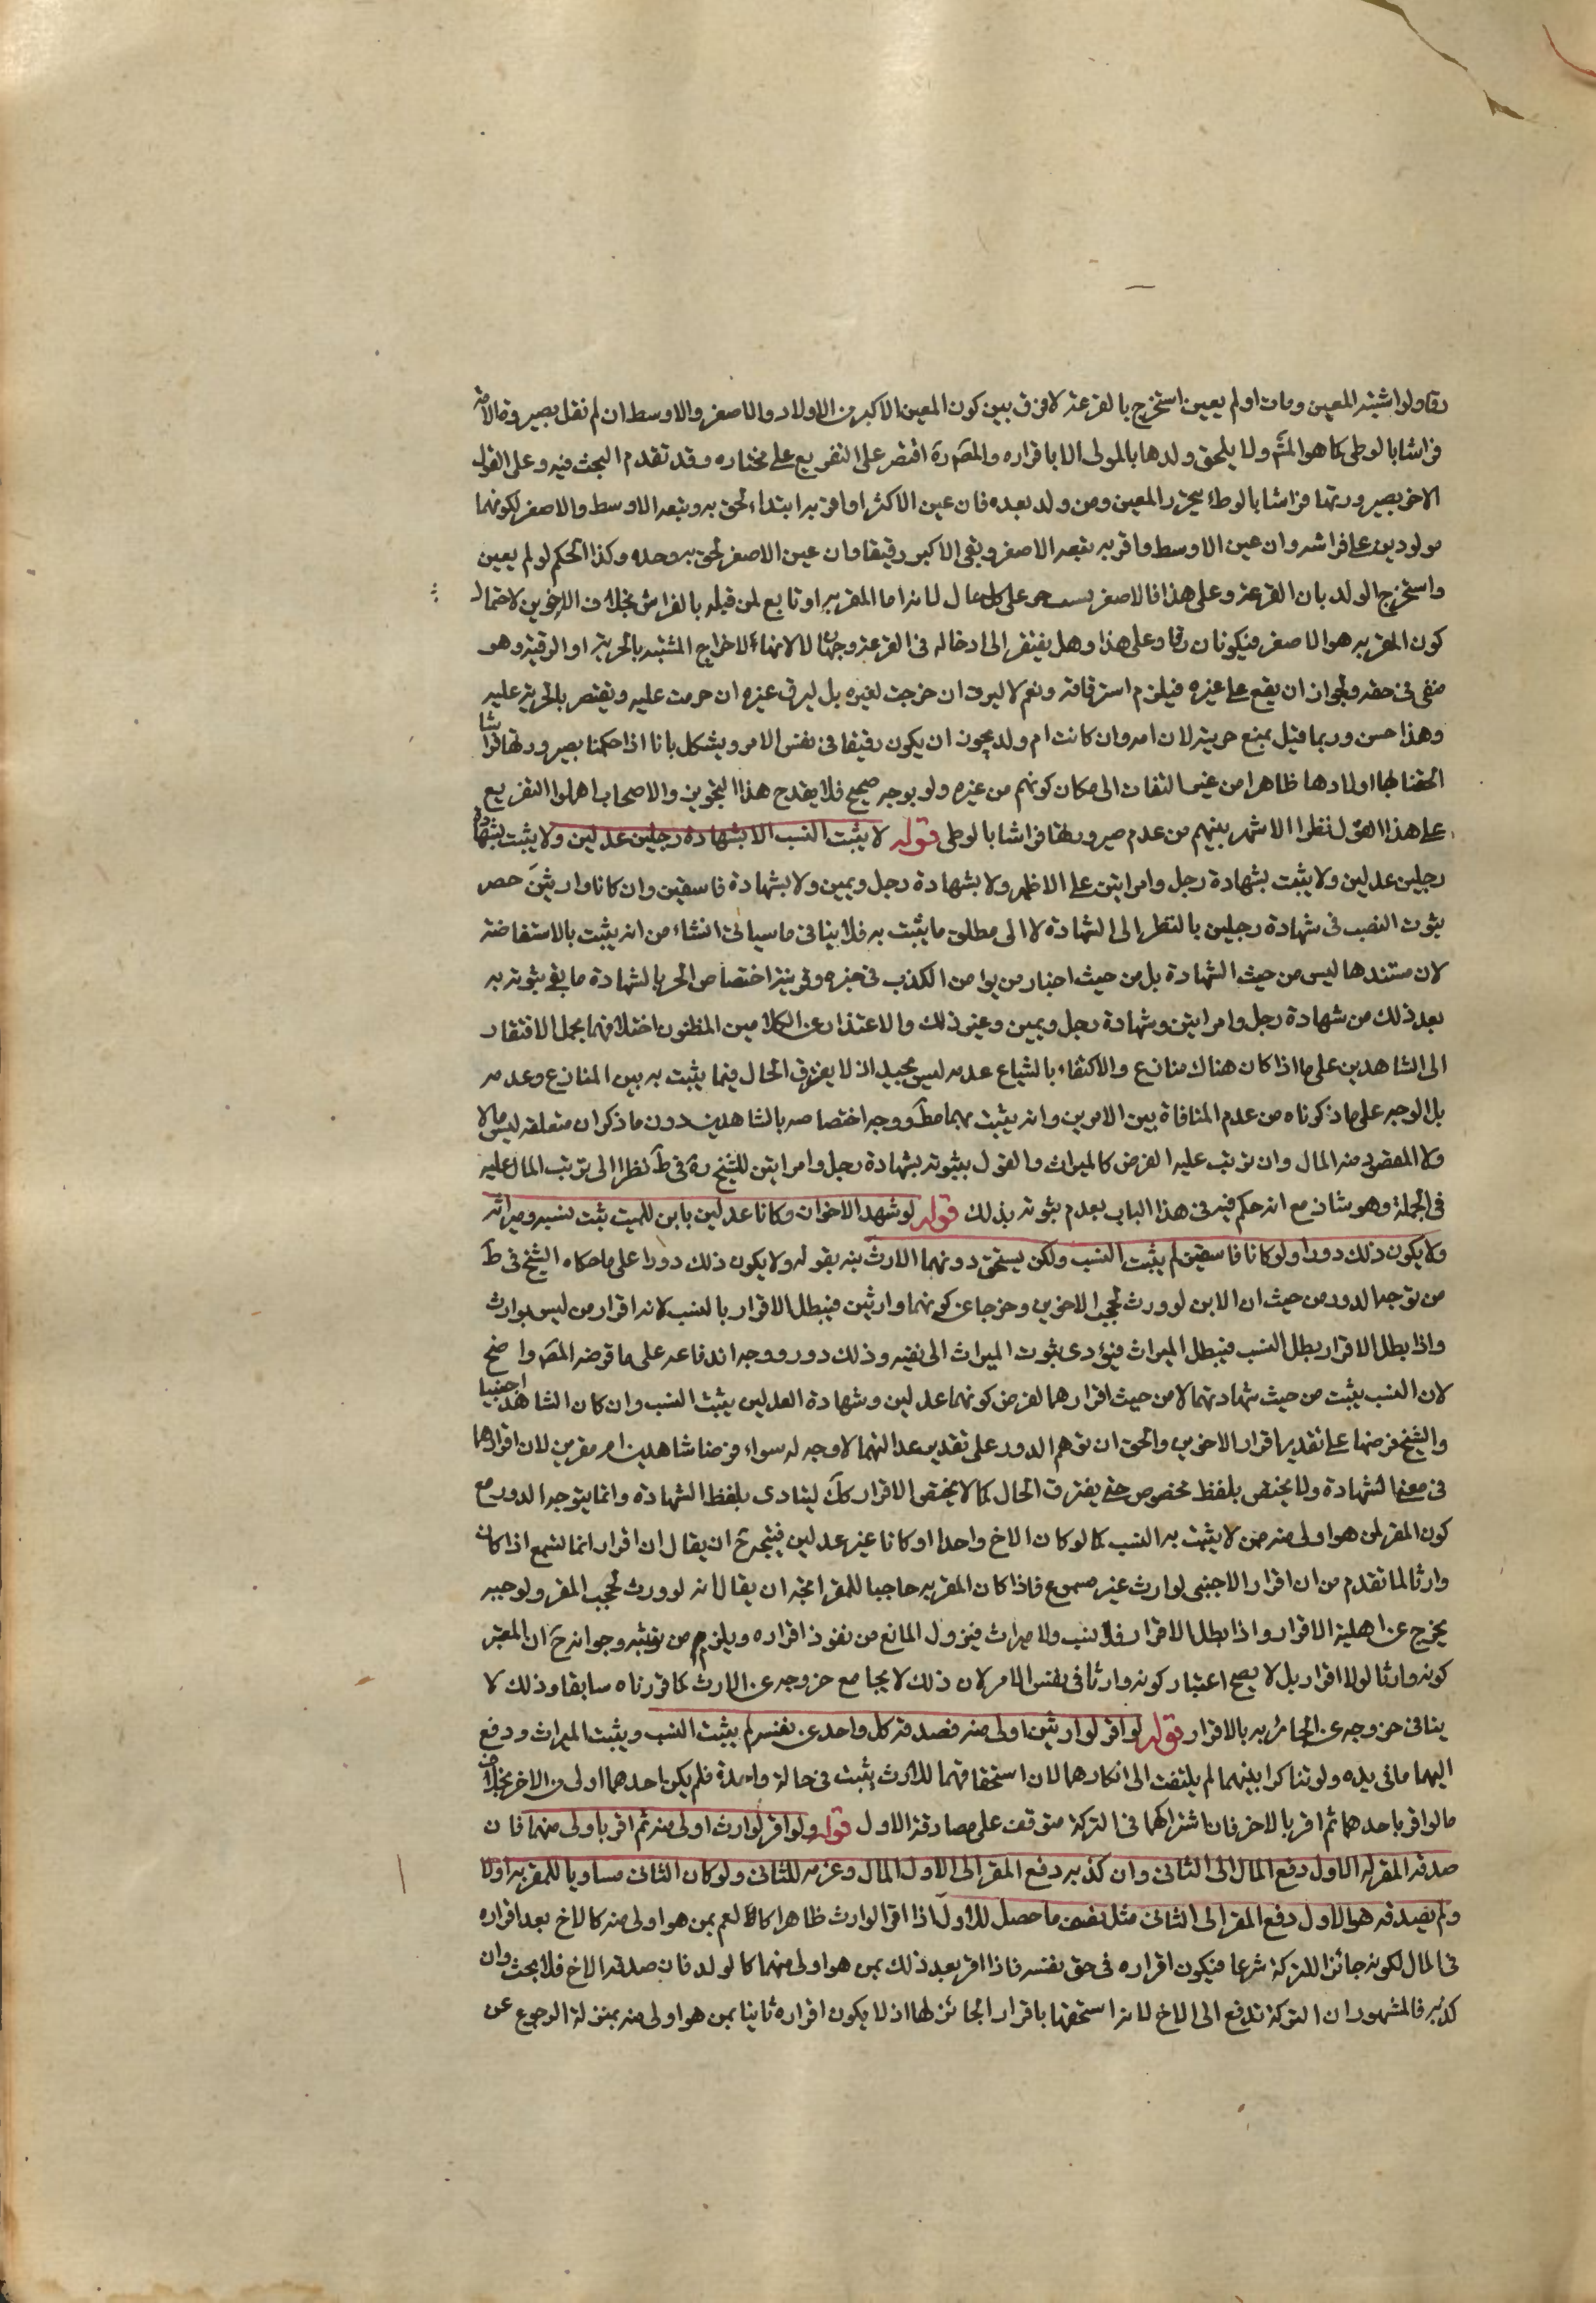 رقا ولو اشتبه المعين ومات او لم يعين استخرج بالقرعة لا فرق بين كون المعين الاكبر من الاولاد والاصغر والاوسط ان لم نقل بصيرورة الامة
فراشا بالوطى كما هو المشهـ ولا يلحق ولدها بالمولى الا باقراره والمصـ ره اقتصر على التفريع على مختاره وقد تقدم البحث فيه وعلى القول
الاخر بصيرورتها فراشا بالوطئ يتحرر المعين ومن ولد بعده فان عين الاكبر او اقر به ابتداء لحق به وتبعه الاوسط والاصغر لكونهما
مولودين على فراشه وان عين الاوسط واقر به تبعه الاصغر وبقى الاكبر رقيقا وان عين الاصغر لحق به وحده وكذا الحكم لو لم يعين
واستخرج الولد بان القرعة وعلى هذا فالاصغر على كل حال لانه اما المقر به او تابع لمن قبله بالفراش بخلاف الاخرين لاحتمال
كون المقر به هو الاصغر فيكونان رقا وعلى هذا وهل يفتقر الى ادخاله فى القرعة وجهان لا لانها لاخراج المشتبه بالحرية او الرقية وهو
منفى فى حقه ولجواز ان يقع على غيره فيلزم استرقاقه ونعم لا ليرق ان خرجت لغيره بل ليرق غيره ان حرمت عليه ويقتصر بالحرية عليه
وهذا حسن وربما قيل بمنع حريته لان امه وان كانت ام ولد يجوز ان يكون رقيقا فى نفس الامر ويشكل بانا اذا حكمنا بصيرورتها فراشا
الحقنا بها اولادها ظاهرا من غير التفات الى امكان كونهم من غيره ولو بوجه صحيح فلا يقدح هذا التجويز والاصحاب اهملوا التفريع
على هذا القول نظرا الا شهر بينهم من عدم صيرورتها فراشا بالوطى قوله لا يثبت النسب الا بشهادة رجلين عدلين ولا يثبت بشهادة
رجلين عدلين ولا يثبت بشهادة رجل وامرأتين على الاظهر ولا بشهادة رجل ويمين ولا بشهادة فاسقين وان كانا وارثين حصر
ثبوت النسب فى شهادة رجلين بالنظر الى الشهادة لا الى مطلق ما يثبت به فلا ينافى ما سياتى انشاء من انه يثبت بالاستفاضة
لان مستندها ليس من حيث الشهادة بل من حيث اخبار من يوامن الكذب فى خبره وقرينة اختصاص الحر بالشهادة ما يفى ثبوته به
بعد ذلك من شهادة رجل وامراتين وشهادة رجل ويمين وغير ذلك والاعتذار عن الكلامين المظنون اختلافهما بحمل الافتقار
الى الشاهدين على ما اذا كان هناك منازع والاكتفاء بالشياع عدمه ليس بجيد اذ لا يفترق الحال فيما يثبت به بين المنازع وعدمه
بل الوجه على ما ذكرناه من عدم المنافاة بين الامرين وانه يثبت بهما مطـ ووجه اختصاصه بالشاهدين دون ما ذكر ان متعلقه ليس مالا
ولا المقصود منه المال وان ترتب عليه العرض كالميراث والقول بثبوته بشهادة رجل وامراتين للشيخ ره فى ط نظرا الى ترتب المال عليه
فى الجملة وهو شاذ مع انه حكم فيه فى هذا الباب بعدم ثبوته بذلك قوله لو شهد الاخوان وكانا عدلين بابن للميت ثبت نسبه وميراثه
ولا يكون ذلك دورا ولو كانا فاسقين لم يثبت النسب ولكن يستحق دونهما الارث نبه بقوله ولا يكون ذلك دورا على ما حكاه الشيخ فى ط
من توجه الدور من حيث ان الابن لو ورث لحجب الاخوين وخرجا عن كونهما وارثين فيبطل الاقرار بالنسب لانه اقرار من ليس بوارث
واذا بطل الاقرار بطل النسب فيبطل الميراث فيؤدى ثبوت الميراث الى نفيه وذلك دور ووجه اندفاعه على ما فرضه المصـ واضح
لان النسب يثبت من حيث شهادتهما لا من حيث اقرارهما لفرض كونهما عدلين وشهادة العدلين يثبت النسب وان كان الشاهد اجنبيا
والشيخ فرضها على تقدير اقرار الاخوين والحق ان توهم الدور على تقدير عدالتهما لا وجه له سواء فرضنا شاهدين ام مقرين لان اقرارهما
فى معنى الشهادة ولا يختص بلفظ مخصوص حتى يفترق الحال كما لا يختص الاقرار كك لينادى بلفظ الشهادة وانما يتوجه الدور مع
كون المقر لمن هو اولى منه ممن لا يثبت به النسب كما لو كان الاخ واحدا او كانا غير عدلين فيتجه ح ان يقال ان اقرار انما لتسمع اذا كان
وارثا لما تقدم من ان اقرار الاجنبى لوارث غير مسموع فاذا كان المقر به حاجبا للمقر اتجه ان يقال انه لو ورث لحجب المقر ولو حجبه
يخرج عن اهلية الاقرار واذا بطل الاقرار فلا نسب ولا ميراث فيزول المانع من نفوذ اقراره ويلزم من وجوابه ح ان المعتبر
كونه وارثا لولا اقرار بل لا يصح اعتبار كونه وارثا فى نفس الامر لان ذلك لا يجامع خروجه عن الارث كما قررناه سابقا وذلك لا
ينافى خروجه عن الحائز به بالاقرار قوله لو اقر لوارثين اولى منه فصدقه كل واحد عن نفسه لم يثبت النسب ويثبت الميراث ودفع
اليهما ما فى يده ولو تناكرا بينهما لم يلتفت الى انكارهما لان استحقاقهما للارث يثبت فى حالة واحدة فلم يكن احدهما اولى من الاخر بخلاف
ما لو اقر باحدهما ثم اقر بالاخر فان اشتراكهما فى التركة متوقف على مصادقة الاول قوله ولو اقر لوارث اولى منه ثم اقر باولى منهما فان
صدقه المقر له الاول دفع المال الى الثانى وان كذبه دفع المقر الى الاول المال وغرمه للثانى ولو كان الثانى مساويا للمقر به اولا
ولم يصدقه هو الاول دفع المقر الى الثانى مثل نصف ما حصل للاول اذا اقر الوارث ظاهرا كالعم بمن هو اولى منه كالاخ بعد اقراره
فى المال لكونه جائز التركة شرعا فيكون اقراره فى حق نفسه فاذا اقر بعد ذلك بمن هو اولى منهما كالولد فان صدقه الاخ فلا بحث وان
كذبه فالمشهور ان التركة تدفع الى الاخ لانه استحقها باقرار الجائز لها اذ لا يكون اقراره ثانيا بمن هو اولى منه بمنزلة الرجوع عن